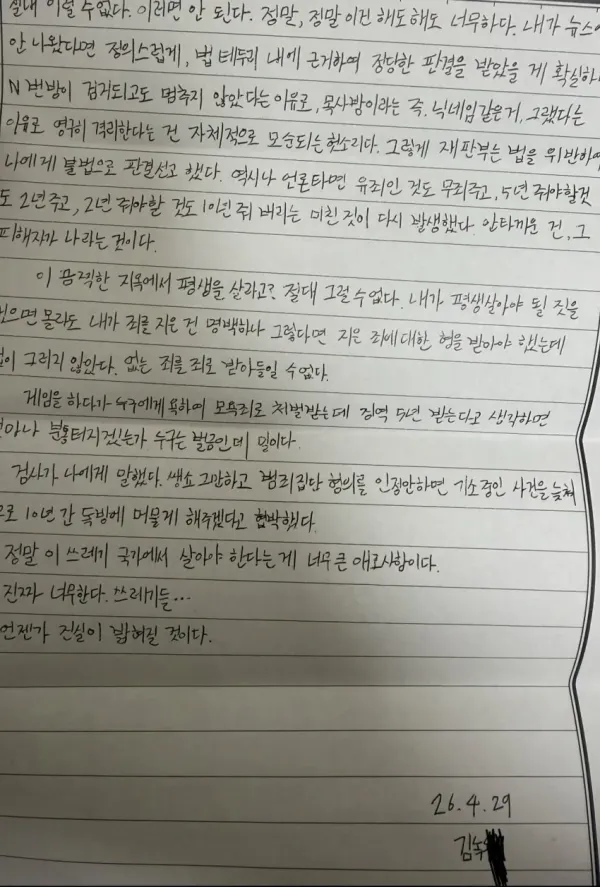 절대 이럴 수 없다. 이러면 안 된다. 정말, 정말 이건 해도해도 너무하다. 내가 뉴스에
안 나왔다면 정의스럽게, 법 테두리 내에 근거하여 정당한 판결을 받았을 게 확실하
N번방이 검거되고도 멈추지 않았다는 이유로, 목사방이라는 즉. 닉네임같은거, 그랬다는
이유로 영구히 격리한다는 건 자체적으로 모순되는 헛소리다. 그렇게 재판부는 법을 위반하여
나에게 불법으로 판결선고 했다. 역시나 언론타면 유죄인 것도 무죄주고, 5년 줘야할것
도 2년주고, 2년 줘야할 것도 10년 줘 버리는 미친 것이 다시 발생했다. 안타까운 건, 그
피해자가 나라는 것이다.
이 끔찍한 지옥에서 평생을 살라고? 절대 그럴 수 없다. 내가 평생살아야 될 짓을
했으면 몰라도 내가 죄를 지은 건 명백하나 그렇다면 지은 죄에 대한 형을 받아야 했는데
이 그러지 않았다. 없는 죄를 죄로 받아들일 수 없다.
게임을 하다가 누구에게 욕하여 모욕죄로 처벌받는데 징역 5년 받는다고 생각하면
얼마나 분통터지겠는가 누구는 벌금인데 말이다.
검사가 나에게 말했다. 쌩쇼 그만하고 범죄집단 혐의를 인정안하면 기소중인 사건을 늦춰
으로 10년 간 독방에 머물게 해주겠다고 협박했다.
정말 이 쓰레기 국가에서 살아야 한다는게 너무 큰 애로사항이다.
진짜 너무한다. 쓰레기들...
언젠가 진실이 밝혀질 것이다.
26.4.29
김녹